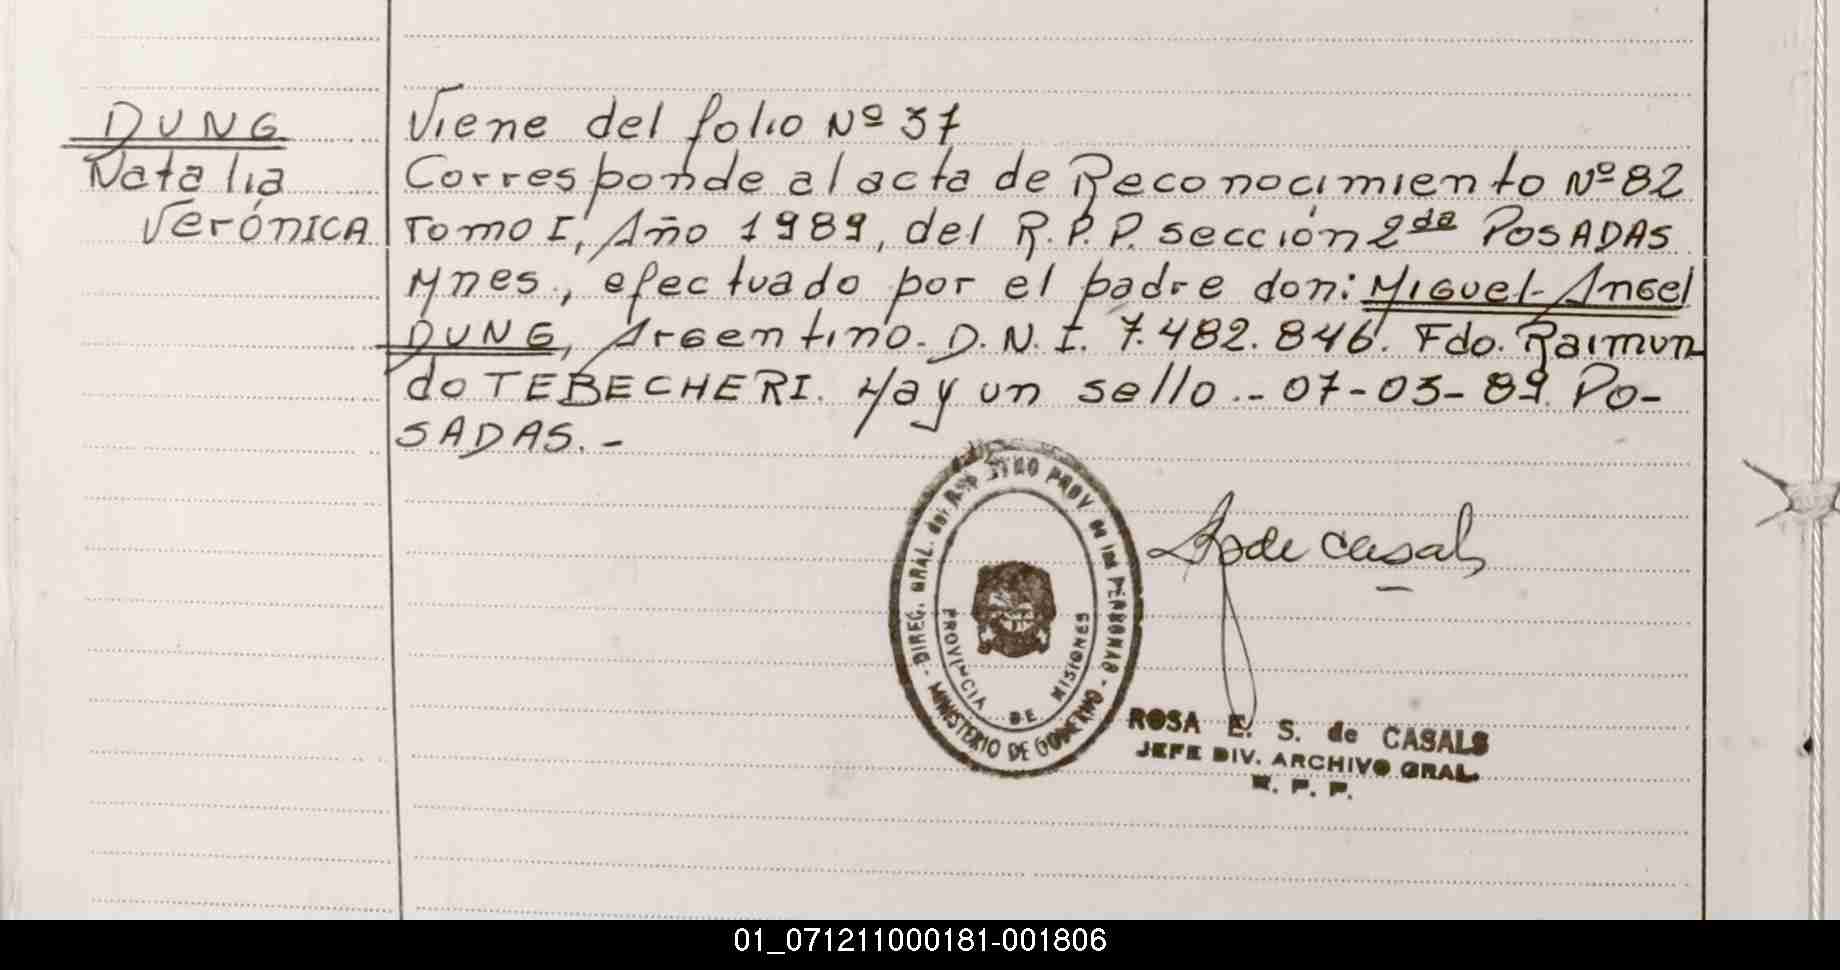 DUNG
Natalia
Verónica
Viene del folio Nº 37
Corresponde al acta de Reconocimiento Nº 82
Tomo I, Año 1989, del R.P.P. sección 2da POSADAS
Mnes., efectuado por el padre don: Miguel Angel
DUNG, Argentino. D.N.I. 7.482.846. Fdo. Raimun
do TEBECHERI. Hay un sello.- 07-03-89. PO-
SADAS.-
DIREC. GRAL. del REGISTRO PROV. de las PERSONAS - MINISTERIO DE GOBIERNO -
PROVINCIA DE MISIONES
de Casals
ROSA E. S. de CASALS
JEFE DIV. ARCHIVO GRAL.
R. P. P.
01_071211000181-001806